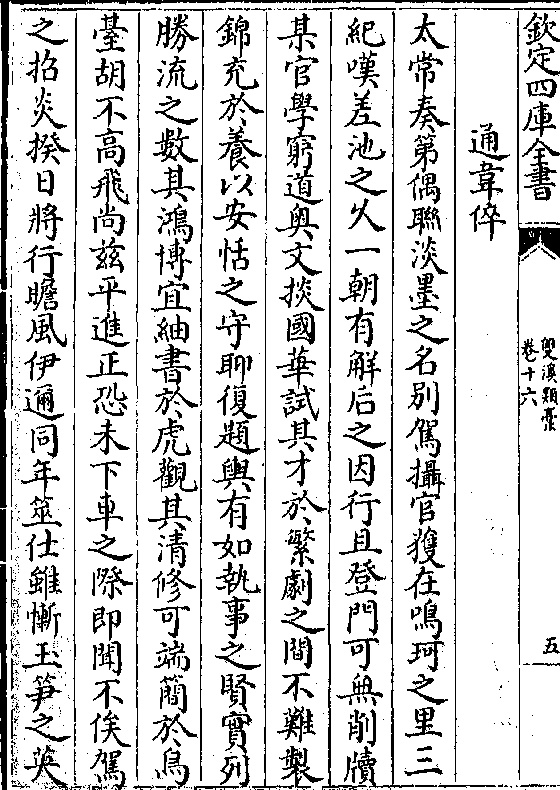 欽定四庫全書
雙溪類藁
卷十六
五
通韋倅
太常奏第偶聯淡墨之名别駕攝官獲在鳴珂之里三
紀嘆差池之乆一朝有解后之因行且登門可無削牘
某官學窮道奥文掞國華試其才於繁劇之間不難製
錦充於養以安恬之守聊復題輿有如執事之賢實列
勝流之數其鴻博宜紬書於虎觀其清修可端簡於烏
臺胡不高飛尚兹平進正恐未下車之際即聞不俟駕
之招炎揆日將行瞻風伊邇同年筮仕雖慚玉笋之英